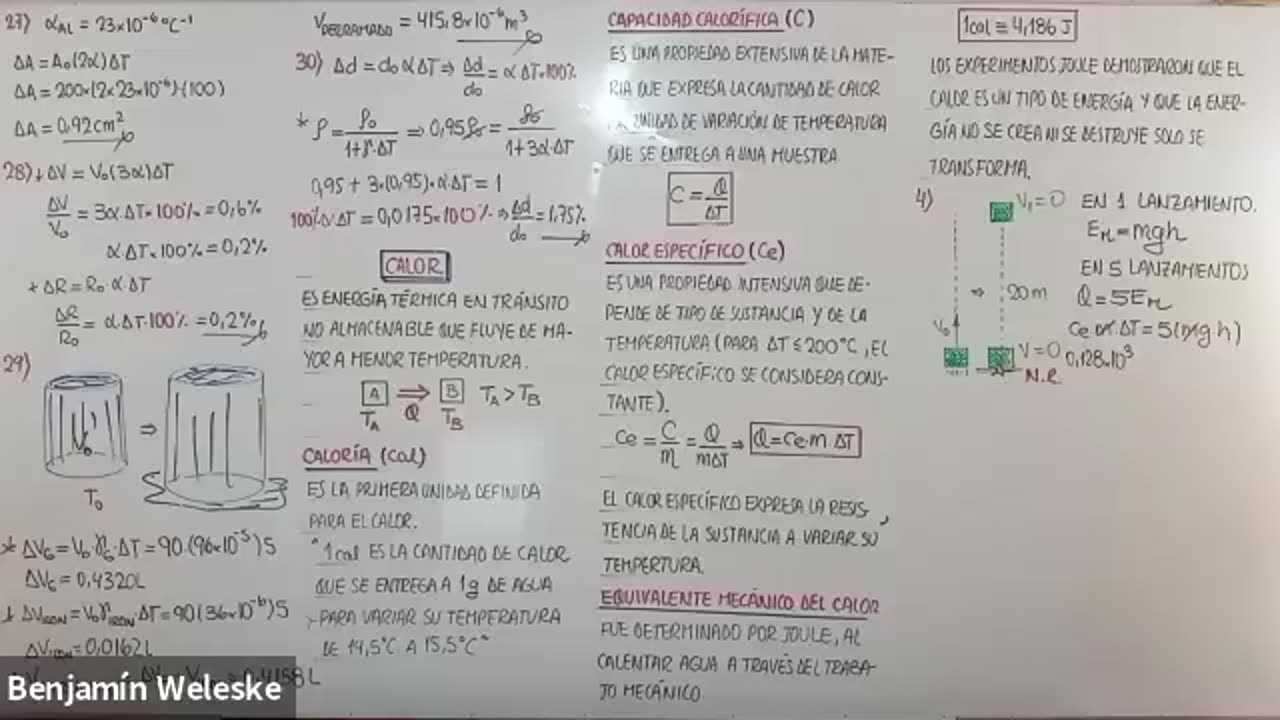 27) αAL = 23x10⁻⁶ °C⁻¹
ΔA = A₀(2α)ΔT
ΔA = 200·(2x23x10⁻⁶)·(100)
ΔA = 0,92cm²
28) * ΔV = V₀(3α)ΔT
ΔV/V₀ = 3α·ΔT·100% = 0,6%
α·ΔT·100% = 0,2%
* ΔR = R₀·α·ΔT
ΔR/R₀ = α·ΔT·100% = 0,2%
29)
V₀
T₀
* ΔVG = V₀ γG·ΔT = 90·(96x10⁻⁵)5
ΔVG = 0,4320L
* ΔVIRON = V₀γIRON·ΔT = 90(36x10⁻⁶)5
ΔVIRON = 0,0162L
0,4158L
VDERRAMADO = 415,8x10⁻⁶m³
30) Δd = d₀αΔT ⇒ Δd/d₀ = αΔT·100%
* ρ = ρ₀/1+γ·ΔT ⇒ 0,95ρ₀ = ρ₀/1+3α·ΔT
0,95 + 3·(0,95)·α·ΔT = 1
100%α·ΔT = 0,0175·100% ⇒ Δd/d₀ = 1,75%
CALOR
ES ENERGÍA TÉRMICA EN TRÁNSITO
NO ALMACENABLE QUE FLUYE DE MA-
YOR A MENOR TEMPERATURA.
A ⇒ B TA > TB
TA Q TB
CALORÍA (Cal)
ES LA PRIMERA UNIDAD DEFINIDA
PARA EL CALOR.
"1cal ES LA CANTIDAD DE CALOR
QUE SE ENTREGA A 1g DE AGUA
PARA VARIAR SU TEMPERATURA
DE 14,5°C A 15,5°C"
CAPACIDAD CALORÍFICA (C)
ES UNA PROPIEDAD EXTENSIVA DE LA MATE-
RIA QUE EXPRESA LA CANTIDAD DE CALOR
UNIDAD DE VARIACIÓN DE TEMPERATURA
QUE SE ENTREGA A UNA MUESTRA
C = Q/ΔT
CALOR ESPECÍFICO (Ce)
ES UNA PROPIEDAD INTENSIVA QUE DE-
PENDE DE TIPO DE SUSTANCIA Y DE LA
TEMPERATURA (PARA ΔT ≤ 200°C, EL
CALOR ESPECÍFICO SE CONSIDERA CONS-
TANTE).
Ce = C/m = Q/mΔT ⇒ Q = Ce·m·ΔT
EL CALOR ESPECÍFICO EXPRESA LA RESIS-
TENCIA DE LA SUSTANCIA A VARIAR SU
TEMPERTURA.
EQUIVALENTE MECÁNICO DEL CALOR
FUE DETERMINADO POR JOULE, AL
CALENTAR AGUA A TRAVÉS DEL TRABA-
JO MECÁNICO
1cal ≡ 4,186 J
LOS EXPERIMENTOS JOULE DEMOSTRARON QUE EL
CALOR ES UN TIPO DE ENERGÍA Y QUE LA ENER-
GÍA NO SE CREA NI SE DESTRUYE SOLO SE
TRANSFORMA.
4) V₁=0 EN 1 LANZAMIENTO.
EM = mgh
EN 5 LANZAMIENTOS
⇒ 20m Q = 5EM
V₀ Ce m·ΔT = 5(mg·h)
V=0 0,128x10³
N.R.
Benjamín Weleske